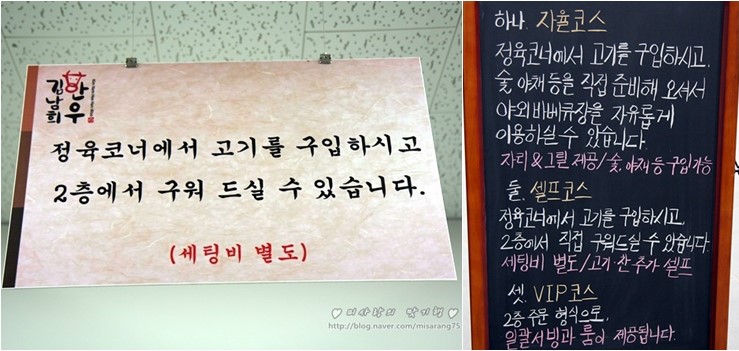 김남희
한우
정육코너에서 고기를 구입하시고
2층에서 구워 드실 수 있습니다.
(세팅비 별도)
♥ 미사랑의 맛기행 ♥
http://blog.naver.com/misarang75
하나. 자율코스
정육코너에서 고기를 구입하시고,
숯, 야채 등을 직접 준비해 오셔서
야외 바베큐장을 자유롭게
이용하실 수 있습니다.
자리 & 그릴 제공/숯, 야채 등 구입가능
둘. 셀프코스
정육코너에서 고기를 구입하시고,
2층에서 직접 구워드실 수 있습니다
세팅비 별도/고기·찬 추가 셀프
셋. VIP코스
2층 주문 형식으로,
일괄서빙과 룸이 제공됩니다.